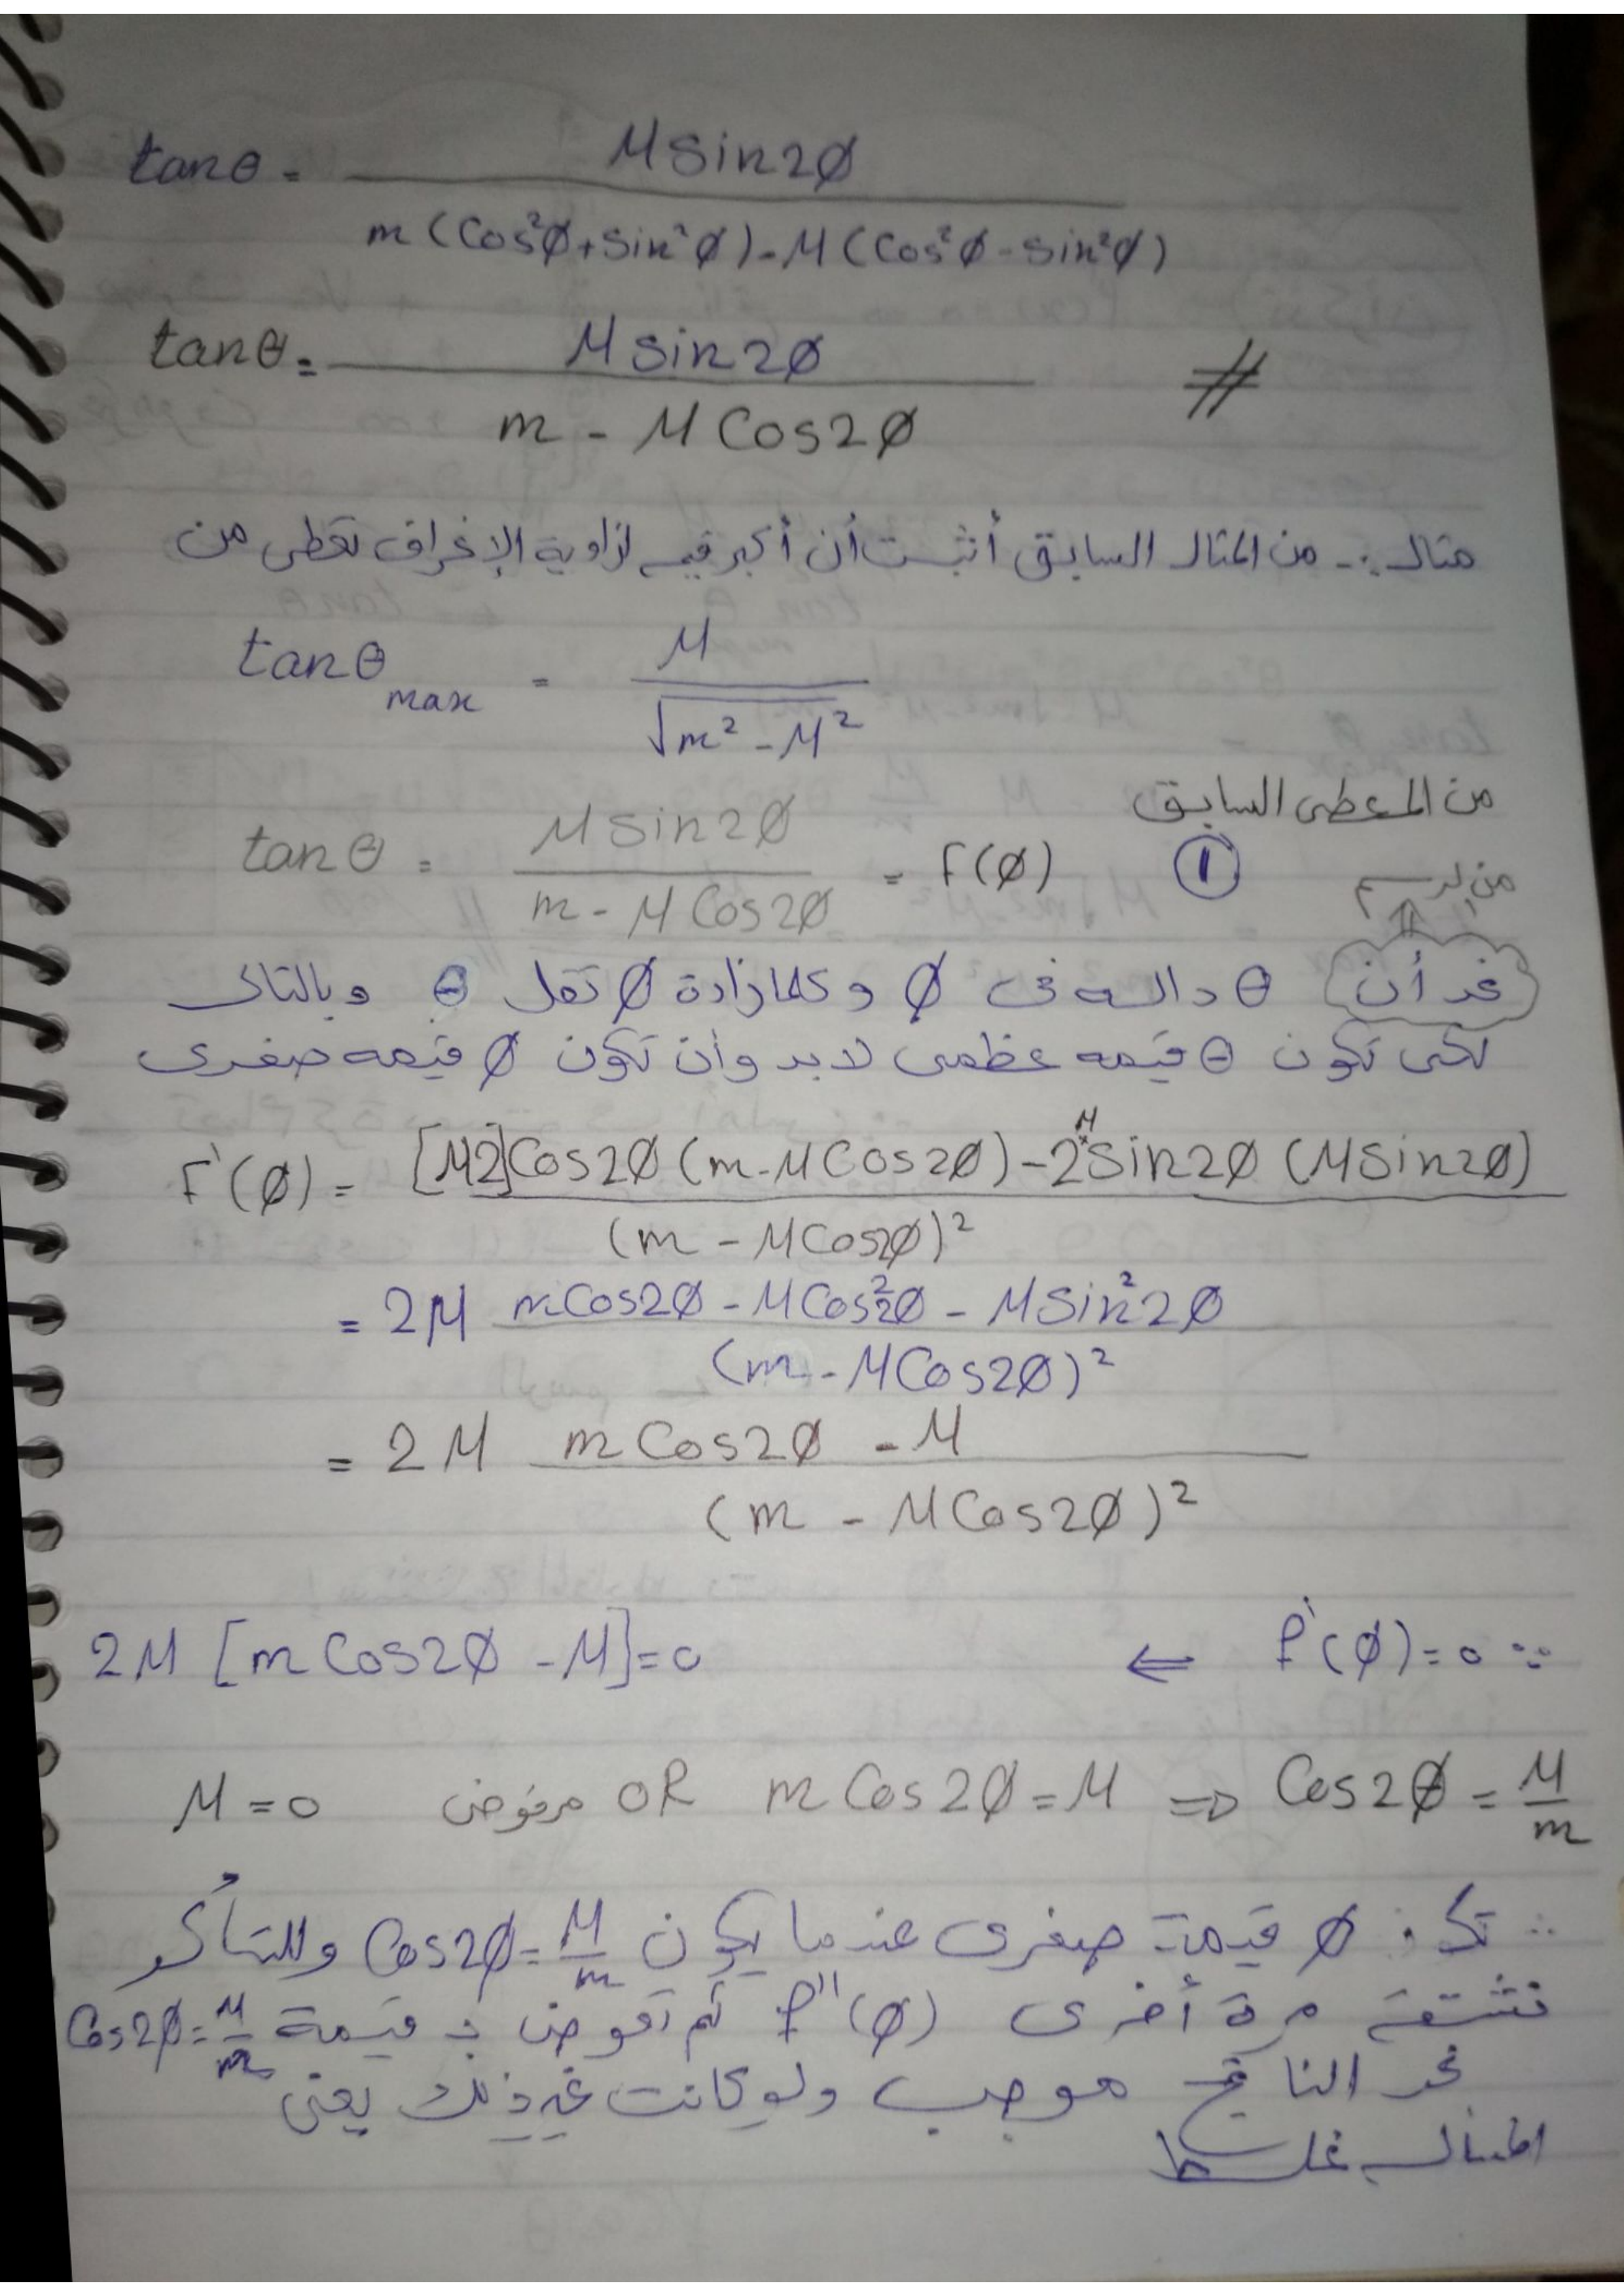 tanθ = M Sin2Ø / m (Cos²Ø + Sin²Ø) - M (Cos²Ø - Sin²Ø)
tanθ = M Sin2Ø / m - M Cos2Ø #
مثال :- من المثال السابق أثبت أن أكبر قيمه لزاوية الإنحراف تعطى من
tanθ max = M / √m² - M²
من المعطى السابق
tanθ = M Sin2Ø / m - M Cos2Ø = F(Ø) ①
من الرسم
نجد أن θ داله فى Ø وكلما زادة Ø تقل θ وبالتالى
لكى تكون θ قيمه عظمى لابد وأن تكون Ø قيمه صغرى
F'(Ø) = [M2]Cos2Ø (m - M Cos2Ø) - 2M Sin2Ø (M Sin2Ø) / (m - M Cos2Ø)²
= 2M m Cos2Ø - M Cos²2Ø - M Sin²2Ø / (m - M Cos2Ø)²
= 2M m Cos2Ø - M / (m - M Cos2Ø)²
∵ f'(Ø) = 0 ⇐ 2M [m Cos2Ø - M] = 0
M = 0 مرفوض OR m Cos2Ø = M ⇒ Cos2Ø = M / m
∴ Ø قيمة صغرى عندما يكون Cos2Ø = M/m وللتأكد
نشتقه مرة أخرى f''(Ø) ثم نعوض بـ قيمة Cos2Ø = M/m
نجد الناتج موجب ولو كانت غير ذلك يعنى
المثال غلط